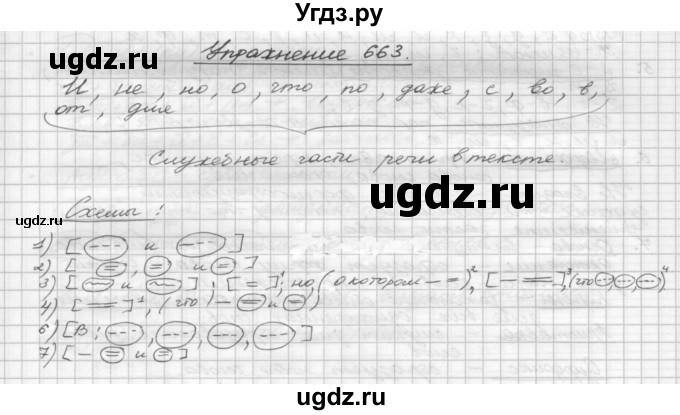 Угдз.ру
ugdz.ru
Упражнение 663.
И, не, но, о, что, по, даже, с, во, в,
от, для
Служебные части речи в тексте.
ugdz.ru
ugdz.ru
Схемы:
ugdz.ru
1) [ и ]
2) [ и ]
3) [ и ] : [ = ]¹, но, (о котором – =)², [ – = ]³, (что , , )⁴
4) [ = ]¹, (что – и )
6) [В : , , , ]
7) [ – и ]
ugdz.ru
ugdz.ru
ugdz.ru